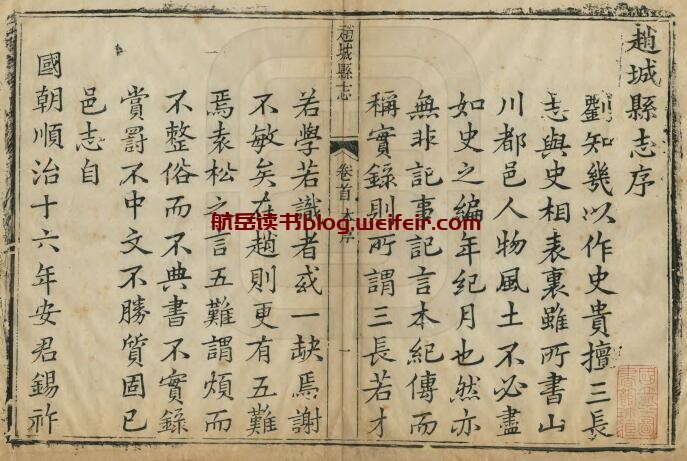 趙城縣志序
劉知幾以作史貴擅三長
志與史相表裏雖所書山
川都邑人物風土不必盡
如史之編年紀月也然亦
無非記事記言本紀傳而
稱實錄則所謂三長若才
趙城縣志
卷首 本序
一
若學若識者或一缺焉謝
不敏矣在趙則更有五難
焉袁松之言五難謂煩而
不整俗而不典書不實錄
賞罰不中文不勝質固已
邑志自
國朝順治十六年安君錫祚
航岳读书blog.weifeir.com